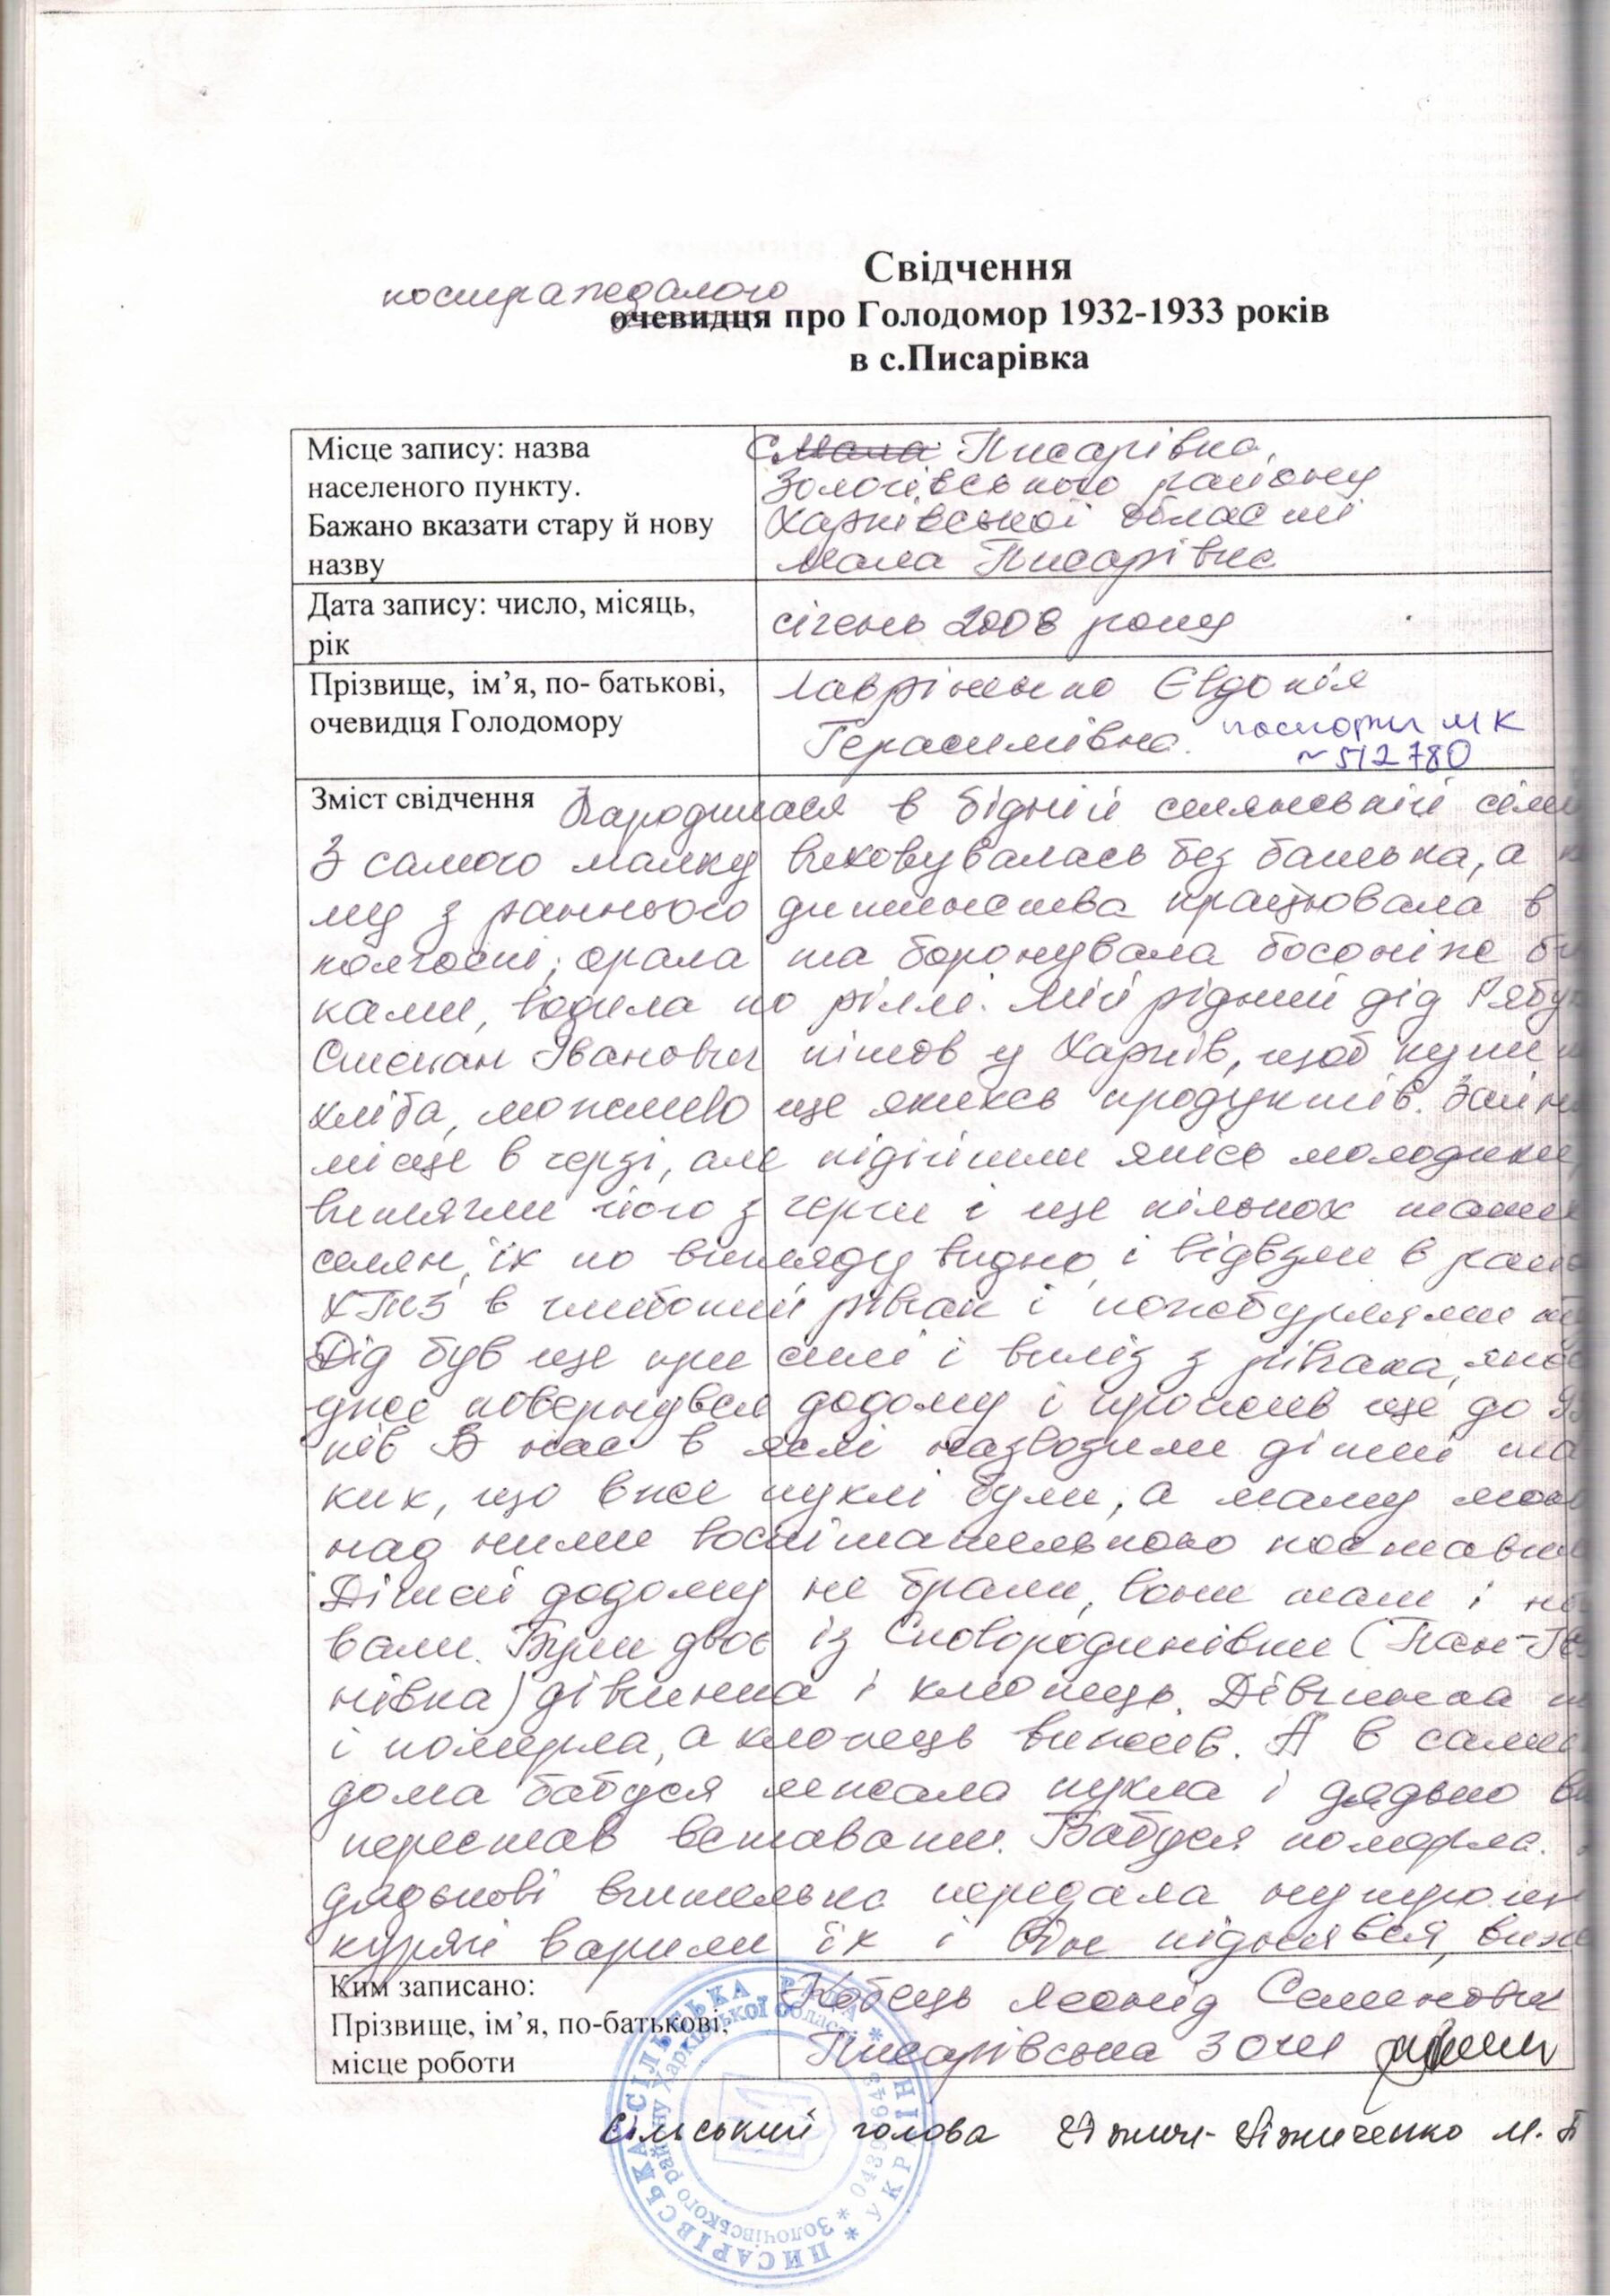 Свідчення
постраждалого
очевидця про Голодомор 1932-1933 років
в с.Писарівка
Місце запису: назва населеного пункту. Бажано вказати стару й нову назву
с Мала Писарівка,
Золочівського району
Харківської області
Мала Писарівка
Дата запису: число, місяць, рік
січень 2008 року
Прізвище, ім’я, по- батькові, очевидця Голодомору
Лавріненко Євдокія
Герасимівна. паспорт МК
~ 512780
Зміст свідчення Народилася в бідній селянській сім
З самого малку виховувалась без батька, а
му з раннього дитинства працювала в
колгоспі; орала та боронувала босоніж би
ками, водила по ріллі. Мій рідний дід Рябу
Степан Іванович пішов у Харків, щоб купи
хліба, можливо ще якихсь продуктів. Зайн
місце в черзі, але підійшли якісь молодики,
витягли його з черги і ще кількох таки
селян, їх по вигляду видно, і відвзли в рай
ХТЗ в глибокий рівчак і поскобурляли
Дід був ще при силі і виліз з рівчака, яко
днєє повернувся додому і прожив ще до
ків В нас в яслі назвозили дітей та
ких, що вже пухлі були, а маму мою
над ними воспітательною постави
Дітей додому не брали, вони там і
вали. Були двоє із Сковородинівки (Пан-Іва
нівка) дівчинка і хлопець. Дівчинка
і померла, а хлопець вижив. А в сами
дома бабуся лежала пухла і дядько
перестав вставати. Бабуся померла.
дядькові вчителька передала
курячі варили їх і він піднявся, виж
Ким записано: Прізвище, ім’я, по-батькові, місце роботи
Кобець Леонід Семенович
Писарівська ЗОШ
Сільський голова Діжиченко М.
ПИСАРІВСЬКА СІЛЬСЬКА РАДА * УКРАЇНА *
Золочівського району Харківської області